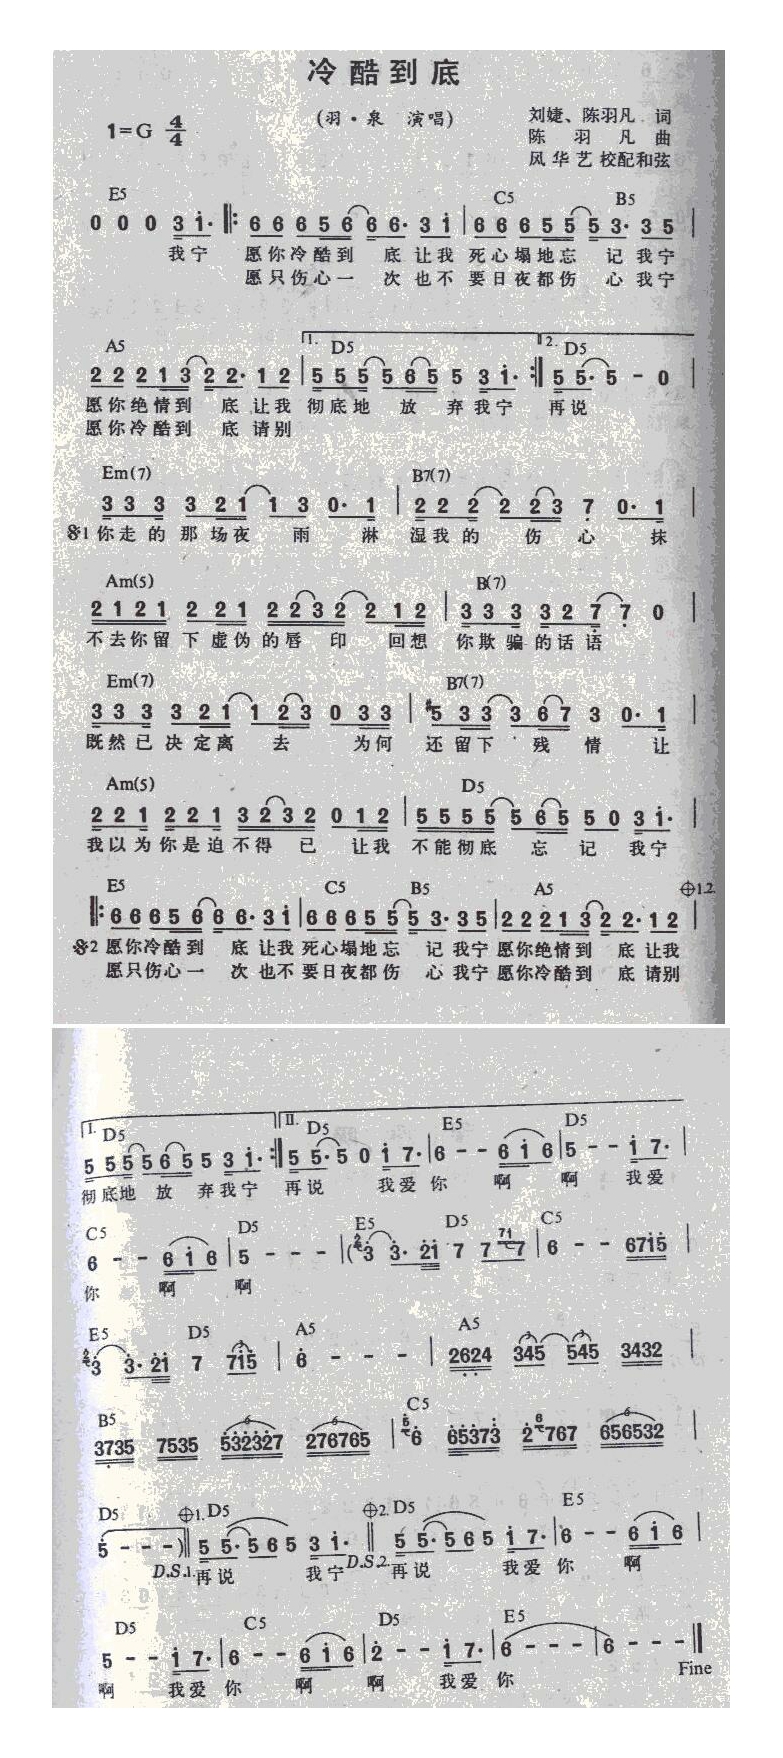 冷酷到底
(羽·泉 演唱)
刘婕、陈羽凡 词
陈羽凡 曲
风华艺 校配和弦
1=G 4/4
E5 C5 B5
0 0 0 3 i· ‖: 6 6 6 5 6 6 6· 3 i | 6 6 6 5 5 5 3· 3 5 |
我宁 愿你冷酷到 底 让我 死心塌地忘 记 我宁
愿只伤心一 次 也不 要日夜都伤 心 我宁
A5 1. D5 2. D5
2 2 2 1 3 2 2· 1 2 | 5 5 5 5 6 5 5 3 i· :‖ 5 5· 5 - 0 |
愿你绝情到 底 让我 彻底地 放 弃 我宁 再说
愿你冷酷到 底 请别
Em(7) B7(7)
3 3 3 3 2 1 1 3 0· 1 | 2 2 2 2 2 3 7 0· 1 |
𝄋1 你走的那场夜 雨 淋 湿我的 伤 心 抹
Am(5) B(7)
2 1 2 1 2 2 1 2 2 3 2 2 1 2 | 3 3 3 3 2 7 7 0 |
不去你留下虚伪的唇 印 回想 你欺骗的话语
Em(7) B7(7)
3 3 3 3 2 1 1 2 3 0 3 3 | #5 3 3 3 6 7 3 0· 1 |
既然已决定离 去 为何 还留下 残 情 让
Am(5) D5
2 2 1 2 2 1 3 2 3 2 0 1 2 | 5 5 5 5 5 6 5 5 0 3 i· |
我以为你是迫不得 已 让我 不能彻底 忘 记 我宁
E5 C5 B5 A5 ⊕1.2.
‖: 6 6 6 5 6 6 6· 3 i | 6 6 6 5 5 5 3· 3 5 | 2 2 2 1 3 2 2· 1 2 |
𝄋2 愿你冷酷到 底 让我 死心塌地忘 记 我宁 愿你绝情到 底 让我
愿只伤心一 次 也不 要日夜都伤 心 我宁 愿你冷酷到 底 请别
I. D5 II. D5 E5 D5
5 5 5 5 6 5 5 3 i· :‖ 5 5· 5 0 i 7· | 6 - - 6 i 6 | 5 - - i 7· |
彻底地 放 弃我宁 再说 我爱 你 啊 啊 我爱
C5 D5 E5 D5 C5
6 - - 6 i 6 | 5 - - - | (3 3· 2i 7 7 7 | 6 - - 67i5 |
你 啊 啊
E5 D5 A5 A5
3 3· 2i 7 7i5 | 6 - - - | 2624 345 545 3432 |
B5 C5
3735 7535 532327 276765 | 6 65373 2767 656532 |
D5 ⊕1. D5 ⊕2. D5 E5
5 - - -)‖ 5 5· 5 6 5 3 i· ‖ 5 5· 5 6 5 i 7· | 6 - - 6 i 6 |
D.S.1. 再说 我宁 D.S.2. 再说 我爱 你 啊
D5 C5 D5 E5
5 - - i 7· | 6 - - 6 i 6 | 2 - - i 7· | 6 - - - | 6 - - - ‖
啊 我爱 你 啊 啊 我爱 你
Fine